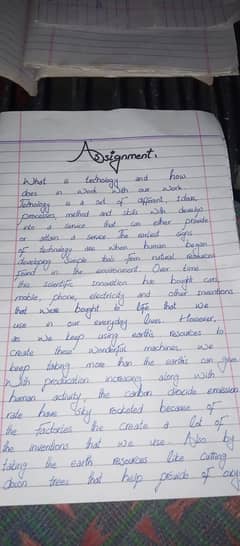 Assignment.
What is technology and how
does in work with our work
Technology is a set of different Ideas,
processes, method and skills with develop
into a service that can either provide
or attain a service The earliest signs
of technology are when human began
developing Simple tools from natural resources
found in the environment. Over time
this scientific Innovation has bought cars,
mobile, phone, electricity and other inventions
that were bought to life that we
use in our everyday lives. However,
as we keep using earths resources to
create these wonderful machines, we
keep taking more than the earth can give.
With production increasing along with
human activity, the carbon dioxide emission
rate have sky rocketed because of
the factories the create a lot of
the inventions that we use. Also by
taking the earth resources like cutting
down trees that help provide of oxy